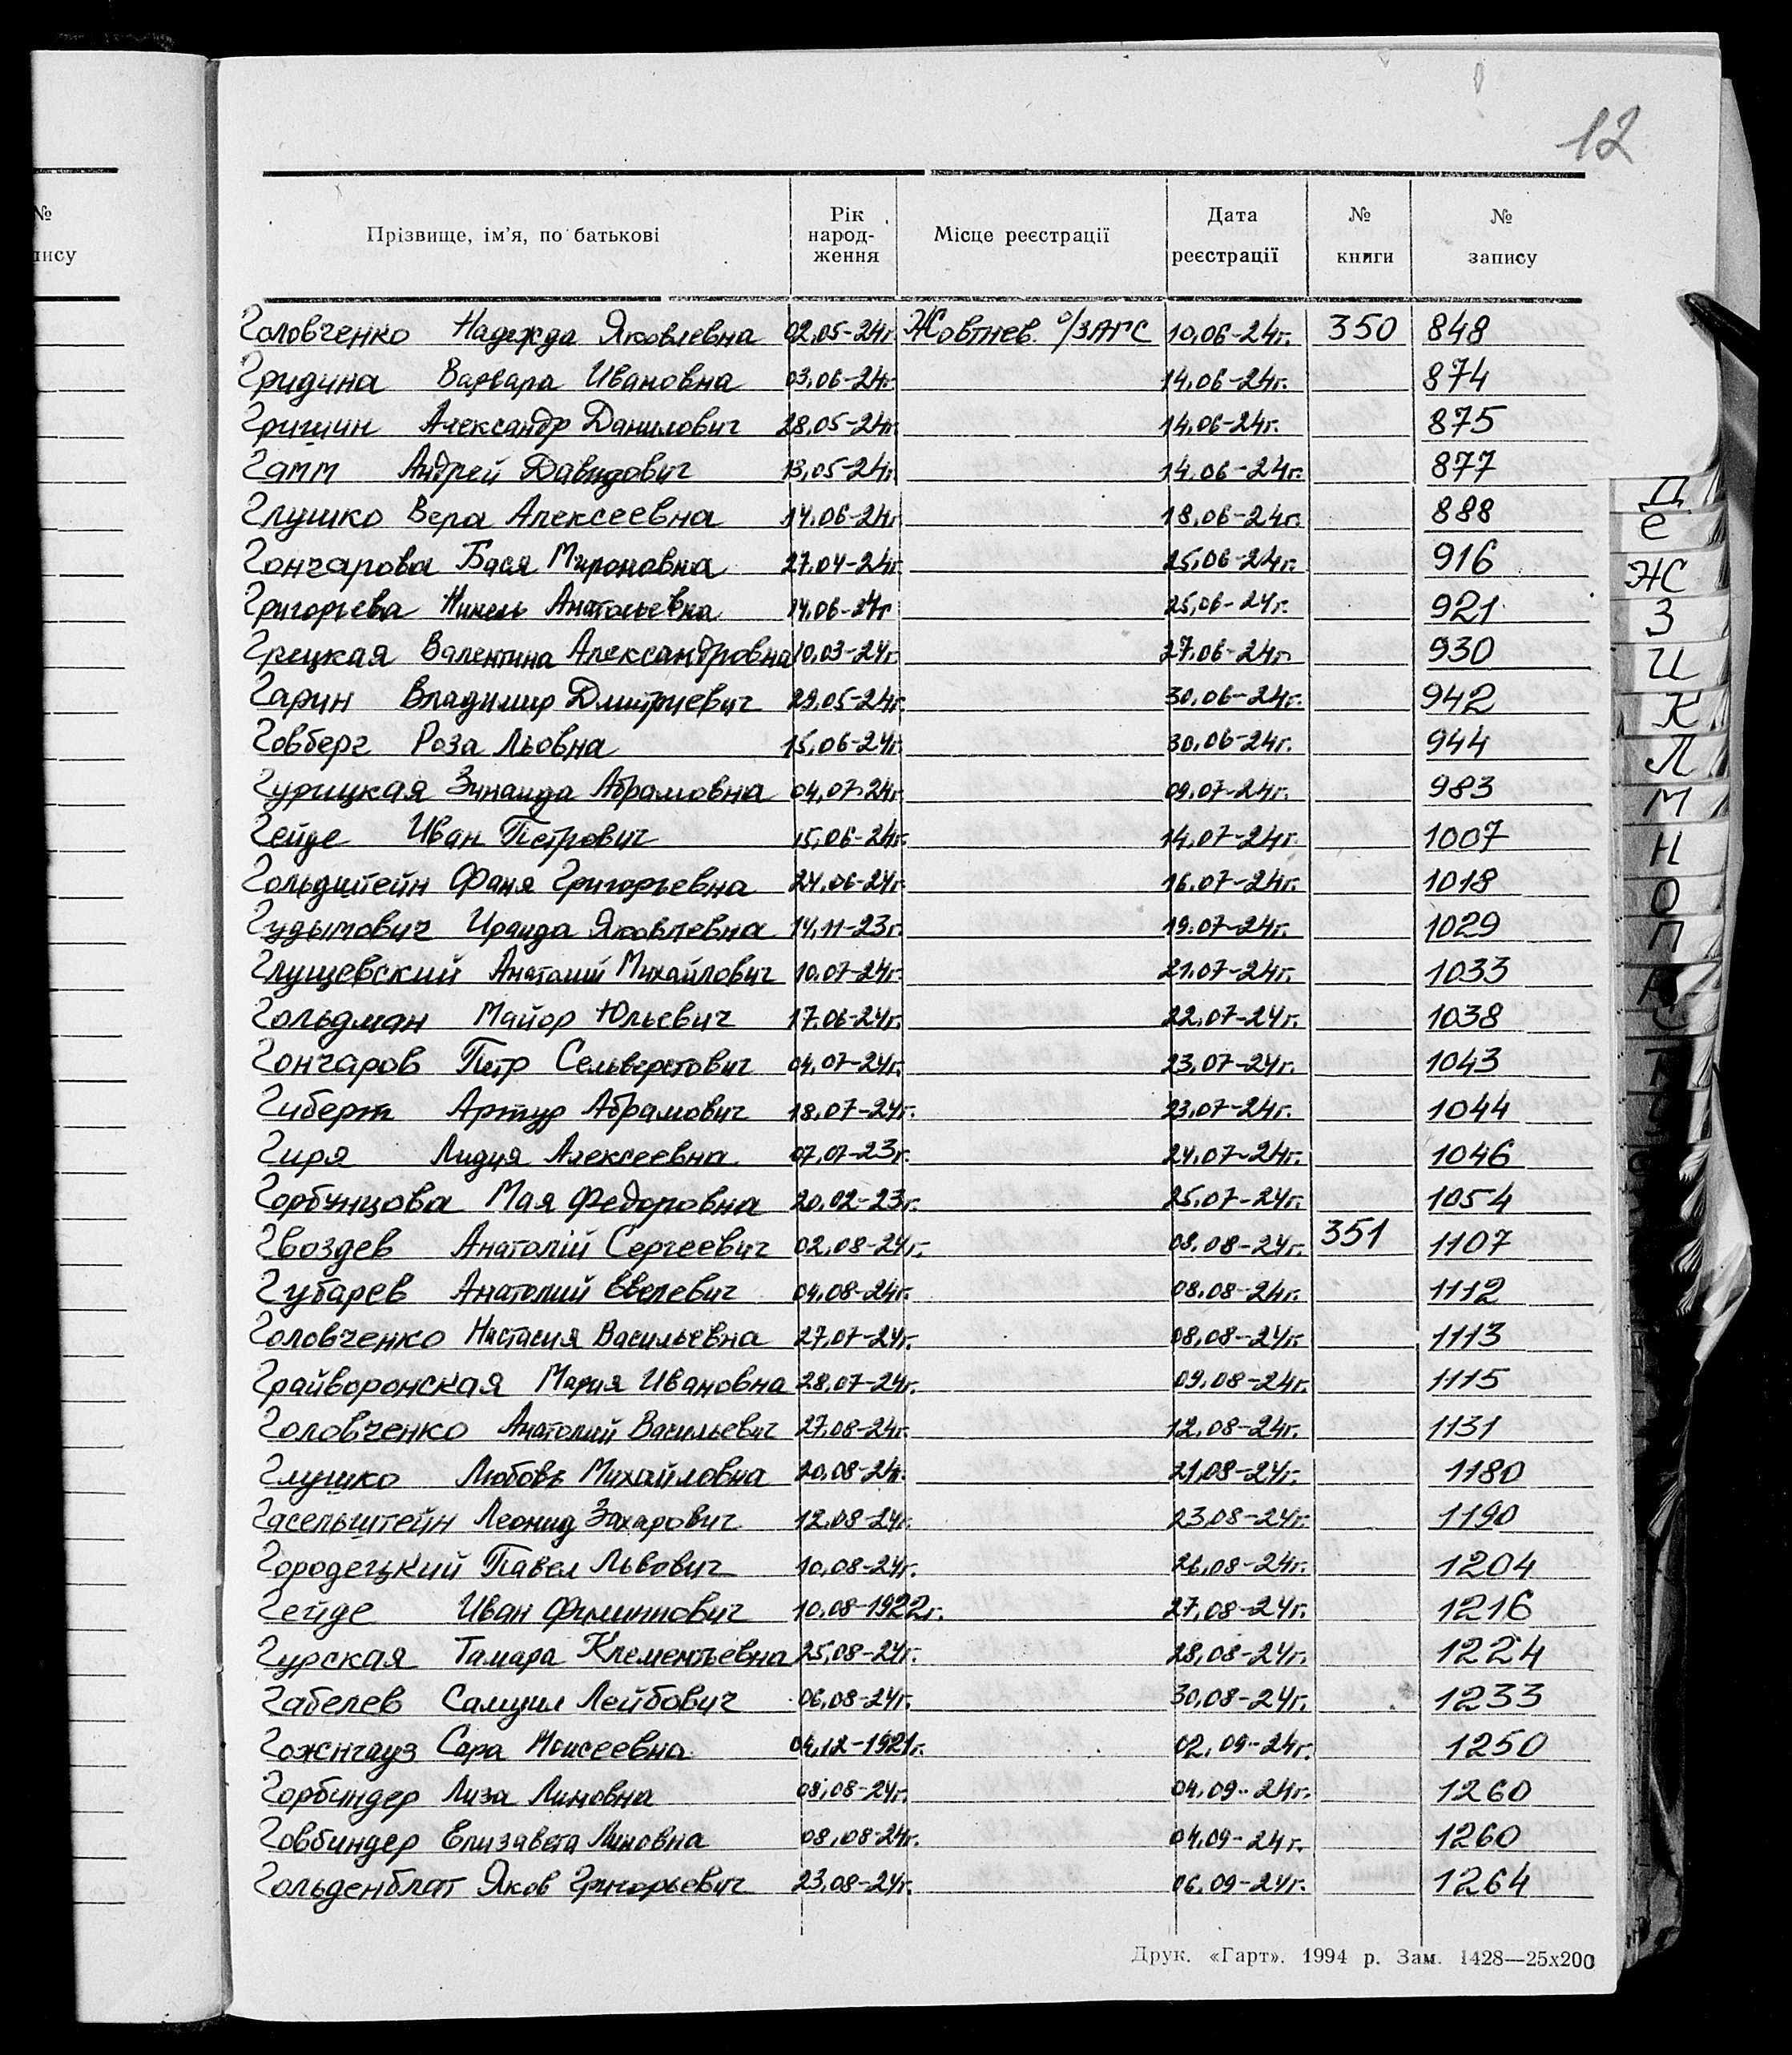 12
№
пису
Прізвище, ім'я, по батькові Рік народження Місце реєстрації Дата реєстрації № книги № запису
Головченко Надежда Яковлевна 02.05-24г. Жовтнев. о/ЗАГС 10.06-24г. 350 848
Гридина Варвара Ивановна 03.06-24г. 14.06-24г. 874
Гришин Александр Данилович 28.05-24г. 14.06-24г. 875
Гамм Андрей Давидович 13.05-24г. 14.06-24г. 877
Глушко Вера Алексеевна 14.06-24г. 18.06-24г. 888
Гончарова Бася Мироновна 27.04-24г. 25.06-24г. 916
Григорьева Нинель Анатольевна 14.06-24г. 25.06-24г. 921
Грецкая Валентина Александровна 10.03-24г. 27.06-24г. 930
Гарин Владимир Дмитриевич 29.05-24г. 30.06-24г. 942
Говберг Роза Льовна 15.06-24г. 30.06-24г. 944
Гурицкая Зинаида Абрамовна 04.07-24г. 09.07-24г. 983
Гейде Иван Петрович 15.06-24г. 14.07-24г. 1007
Гольдштейн Фаня Григорьевна 24.06-24г. 16.07-24г. 1018
Гудымович Ираида Яковлевна 14.11-23г. 19.07-24г. 1029
Глущевский Анатолий Михайлович 10.07-24г. 21.07-24г. 1033
Гольдман Майор Юльевич 17.06-24г. 22.07-24г. 1038
Гончаров Петр Сельверстович 04.07-24г. 23.07-24г. 1043
Гиберт Артур Абрамович 18.07-24г. 23.07-24г. 1044
Гиря Лидия Алексеевна 07.07-23г. 24.07-24г. 1046
Горбунцова Мая Федоровна 20.02-23г. 25.07-24г. 1054
Гвоздев Анатолій Сергеевич 02.08-24г. 08.08-24г. 351 1107
Губарев Анатолий 04.08-24г. 08.08-24г. 1112
Головченко Настасия Васильевна 27.07-24г. 08.08-24г. 1113
Грайворонская Мария Ивановна 28.07-24г. 09.08-24г. 1115
Головченко Анатолий Васильевич 27.08-24г. 12.08-24г. 1131
Глушко Любовь Михайловна 20.08-24г. 21.08-24г. 1180
Гасельштейн Леонид Захарович 12.08-24г. 23.08-24г. 1190
Городецкий Павел Львович 10.08-24г. 26.08-24г. 1204
Гейде Иван Филиппович 10.08-1922г. 27.08-24г. 1216
Гурская Тамара Клементьевна 25.08-24г. 28.08-24г. 1224
Габелев Самуил Лейбович 06.08-24г. 30.08-24г. 1233
Гожнгауз Сара Моисеевна 04.12-1921г. 02.09-24г. 1250
Горбиндер Лиза 08.08-24г. 04.09-24г. 1260
Говбиндер Елизавета 08.08-24г. 04.09-24г. 1260
Гольденблат Яков Григорьевич 23.08-24г. 06.09-24г. 1264
Друк. «Гарт». 1994 р. Зам. 1428—25х200
Д
Е
Ж
З
И
К
Л
М
Н
О
П
Р
С
Т